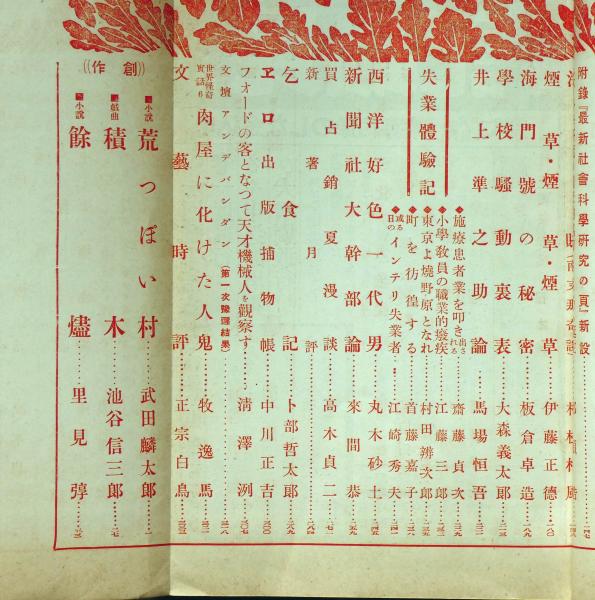 附錄『最新社會科學研究の頁』新設
煙草・煙草・煙草 伊藤正德
海門號の秘密 板倉卓造
學校騷動裏表 大森義太郞
井上準之助論 馬場恒吾
失業體驗記
施療患者業を叩き出される 齋藤貞次
小學敎員の職業的發疾 江藤三郞
東京よ燒野原となれ 村田辨次郞
町を彷徨する 首藤嘉子
或る日のインテリ失業者 江崎秀夫
西洋好色一代男 丸木砂土
新聞社大幹部論 來間恭
買占銷夏漫談 高木貞二
新著月評
乞食記 卜部哲太郞
ヱロ出版捕物帳 中川正吉
フォードの客となつて天才機械人を觀察す 淸澤洌
文壇アンデパンダン(第一次豫選結果)
世界怪奇實話6 肉屋に化けた人鬼 牧逸馬
文藝時評 正宗白鳥
((創作))
小說 荒つぽい村 武田麟太郞
戲曲 積木 池谷信三郞
小說 餘燼 里見弴